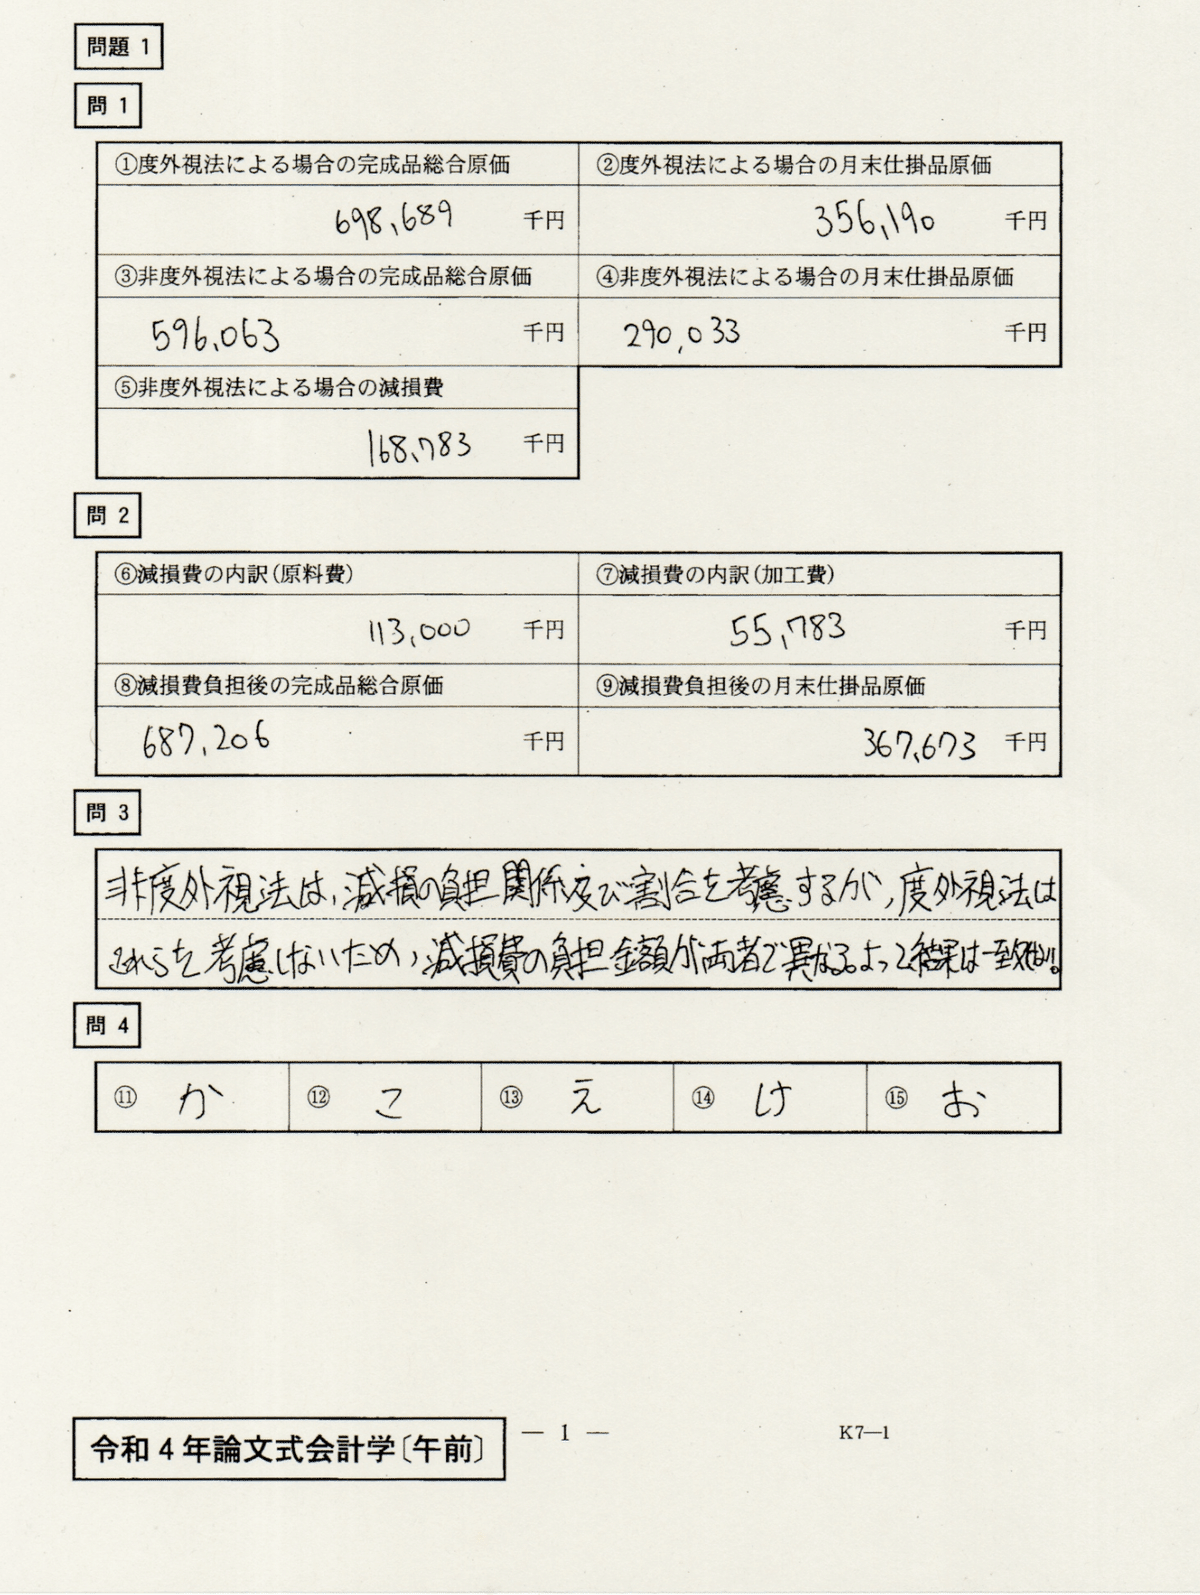 問題 1
問 1
①度外視法による場合の完成品総合原価 ②度外視法による場合の月末仕掛品原価
698,689 千円 356,190 千円
③非度外視法による場合の完成品総合原価 ④非度外視法による場合の月末仕掛品原価
596,063 千円 290,033 千円
⑤非度外視法による場合の減損費
168,783 千円
問 2
⑥減損費の内訳(原料費) ⑦減損費の内訳(加工費)
113,000 千円 55,783 千円
⑧減損費負担後の完成品総合原価 ⑨減損費負担後の月末仕掛品原価
687,206 千円 367,673 千円
問 3
非度外視法は、減損の負担関係及び割合を考慮するが、度外視法は
これらを考慮しないため、減損費の負担金額が両者で異なる。よって結果は一致しない。
問 4
⑪ か ⑫ こ ⑬ え ⑭ け ⑮ お
令和4年論文式会計学〔午前〕 — 1 — K7—1